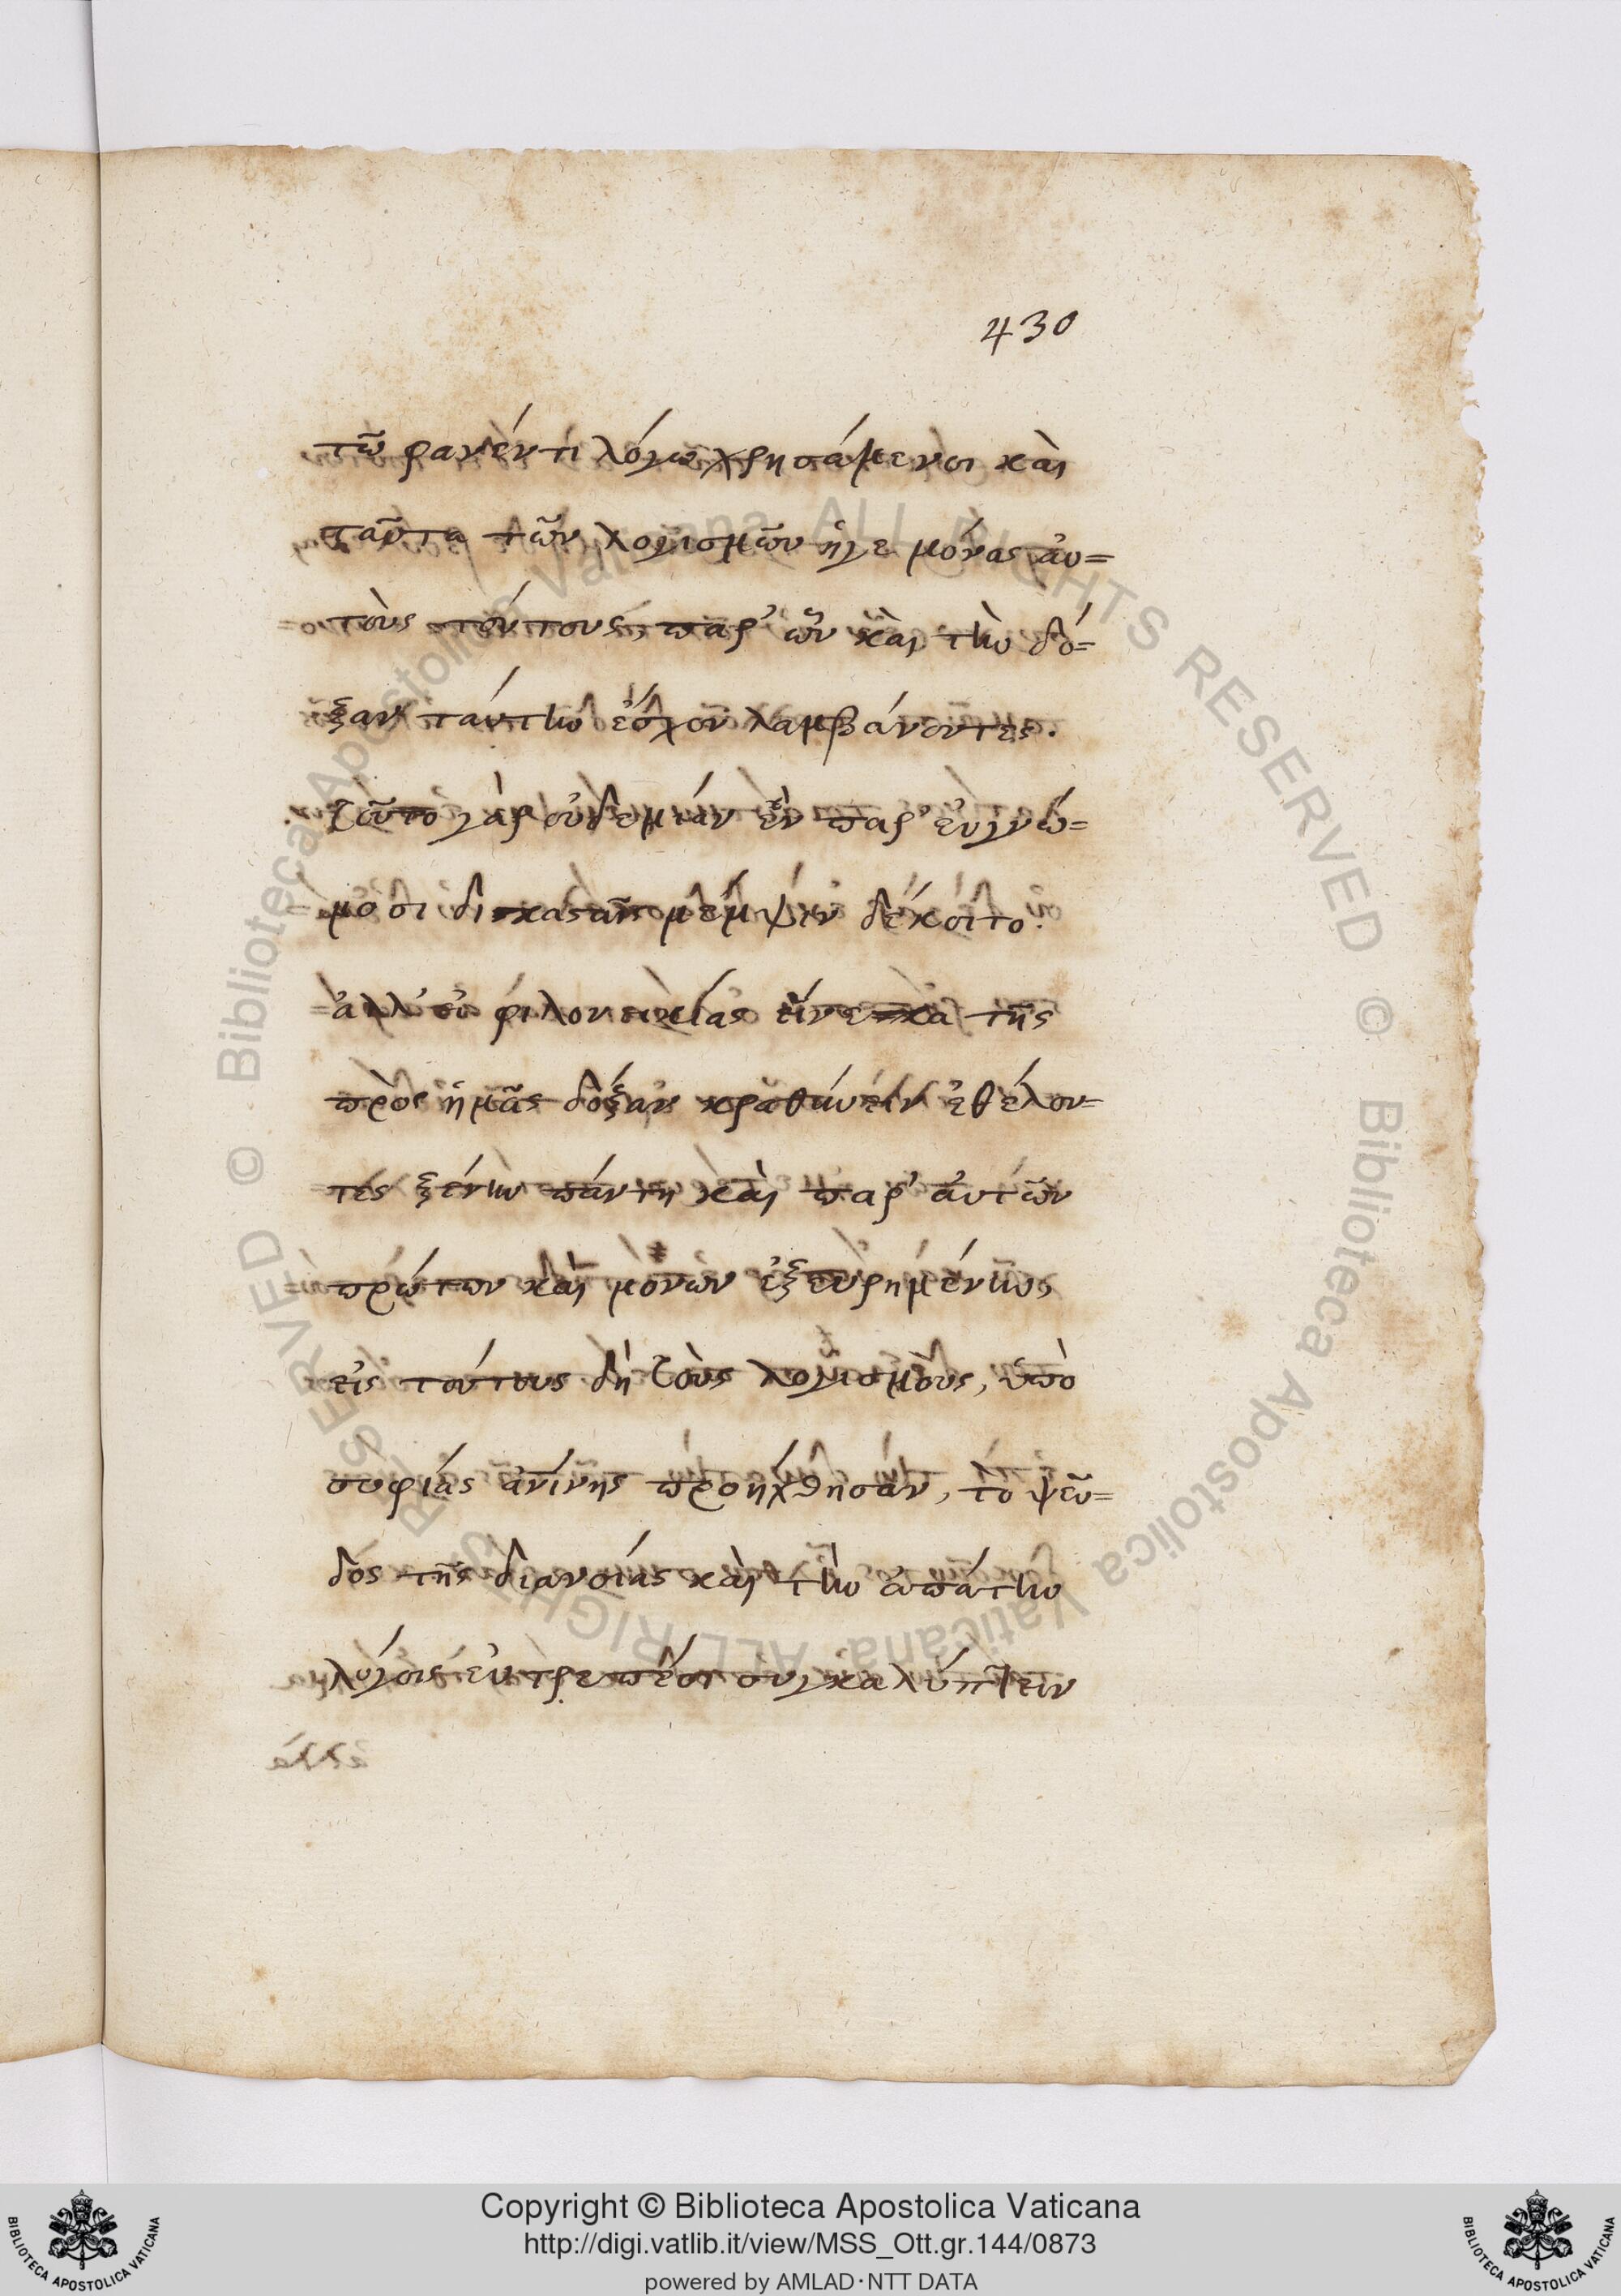 430
τῶ φανέντι λόγω χρησάμενοι καὶ
ταῦτα τῶν λογισμῶν ἡγεμόνας αὐ=
τοὺς τούτους, παρ' ὧν καὶ τὴν δό=
ξαν ταύτην ἔσχον λαμβάνοντες.
τοῦτο γὰρ οὐδεμίαν ἂν παρ' εὐγνώ=
μοσι δικασταῖς μέμψιν δέχοιτο.
ἀλλ' οὐ φιλονεικίας εἵνεκα τῆς
πρὸς ἡμᾶς δόξαν κρατύνειν ἐθέλον=
τες ξένην πάντη καὶ παρ' αὐτῶν
πρώτων καὶ μόνων ἐξευρημένην
εἰς τούτους δὴ τοὺς λογισμοὺς, ὑπὸ
σοφίας προήχθησαν, τὸ ψεῦ=
δος τῆς διανοίας καὶ τὴν ἀπάτην
λόγοις εὐπρεπέσι συγκαλύπτειν
Copyright © Biblioteca Apostolica Vaticana
http://digi.vatlib.it/view/MSS_Ott.gr.144/0873
powered by AMLAD·NTT DATA
BIBLIOTECA APOSTOLICA VATICANA
BIBLIOTECA APOSTOLICA VATICANA
© Biblioteca Apostolica Vaticana ALL RIGHTS RESERVED
© Biblioteca Apostolica Vaticana ALL RIGHTS RESERVED